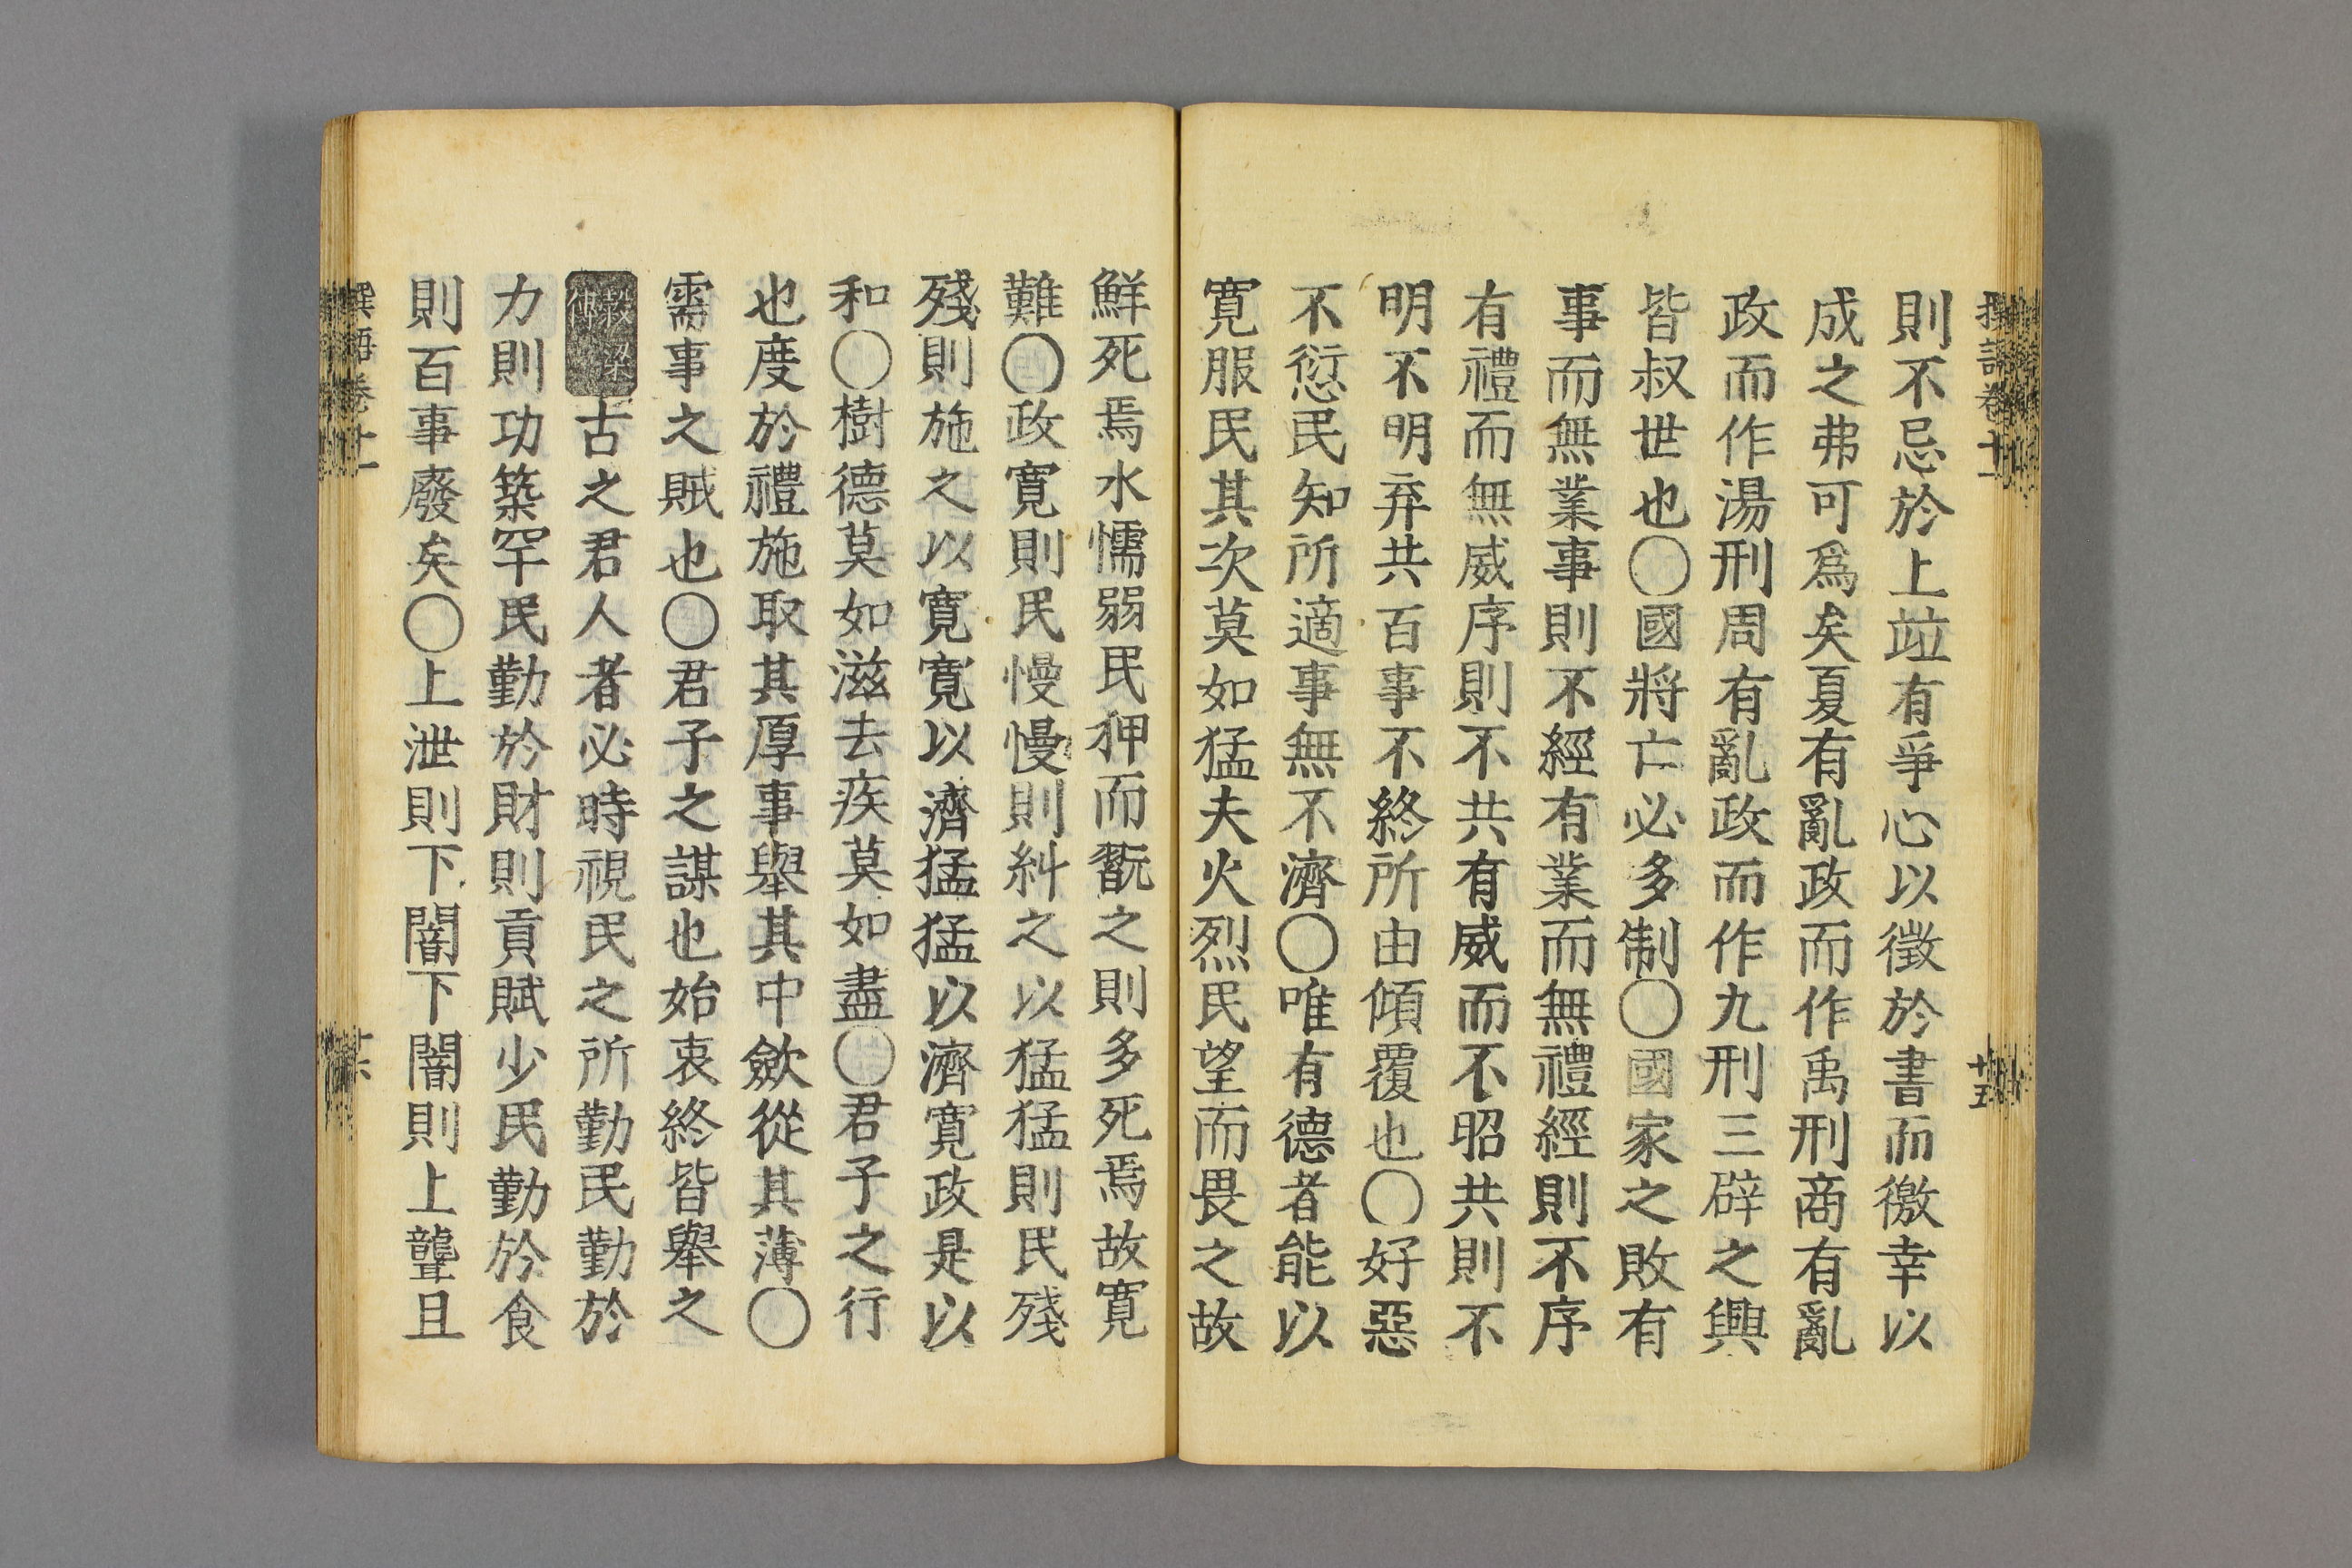 撰語卷十一
十五
則不忌於上竝有爭心以徵於書而徼幸以
成之弗可爲矣夏有亂政而作禹刑商有亂
政而作湯刑周有亂政而作九刑三辟之興
皆叔世也○國將亡必多制○國家之敗有
事而無業事則不經有業而無禮經則不序
有禮而無威序則不共有威而不昭共則不
明不明弃共百事不終所由傾覆也○好惡
不愆民知所適事無不濟○唯有德者能以
寬服民其次莫如猛夫火烈民望而畏之故
鮮死焉水懦弱民狎而翫之則多死焉故寬
難○政寬則民慢慢則糾之以猛猛則民殘
殘則施之以寬寬以濟猛猛以濟寬政是以
和○樹德莫如滋去疾莫如盡○君子之行
也度於禮施取其厚事舉其中斂從其薄○
需事之賊也○君子之謀也始衷終皆舉之
穀梁
古之君人者必時視民之所勤民勤於
力則功築罕民勤於財則貢賦少民勤於食
則百事廢矣○上泄則下闇下闇則上聾且
撰語卷十一
十六